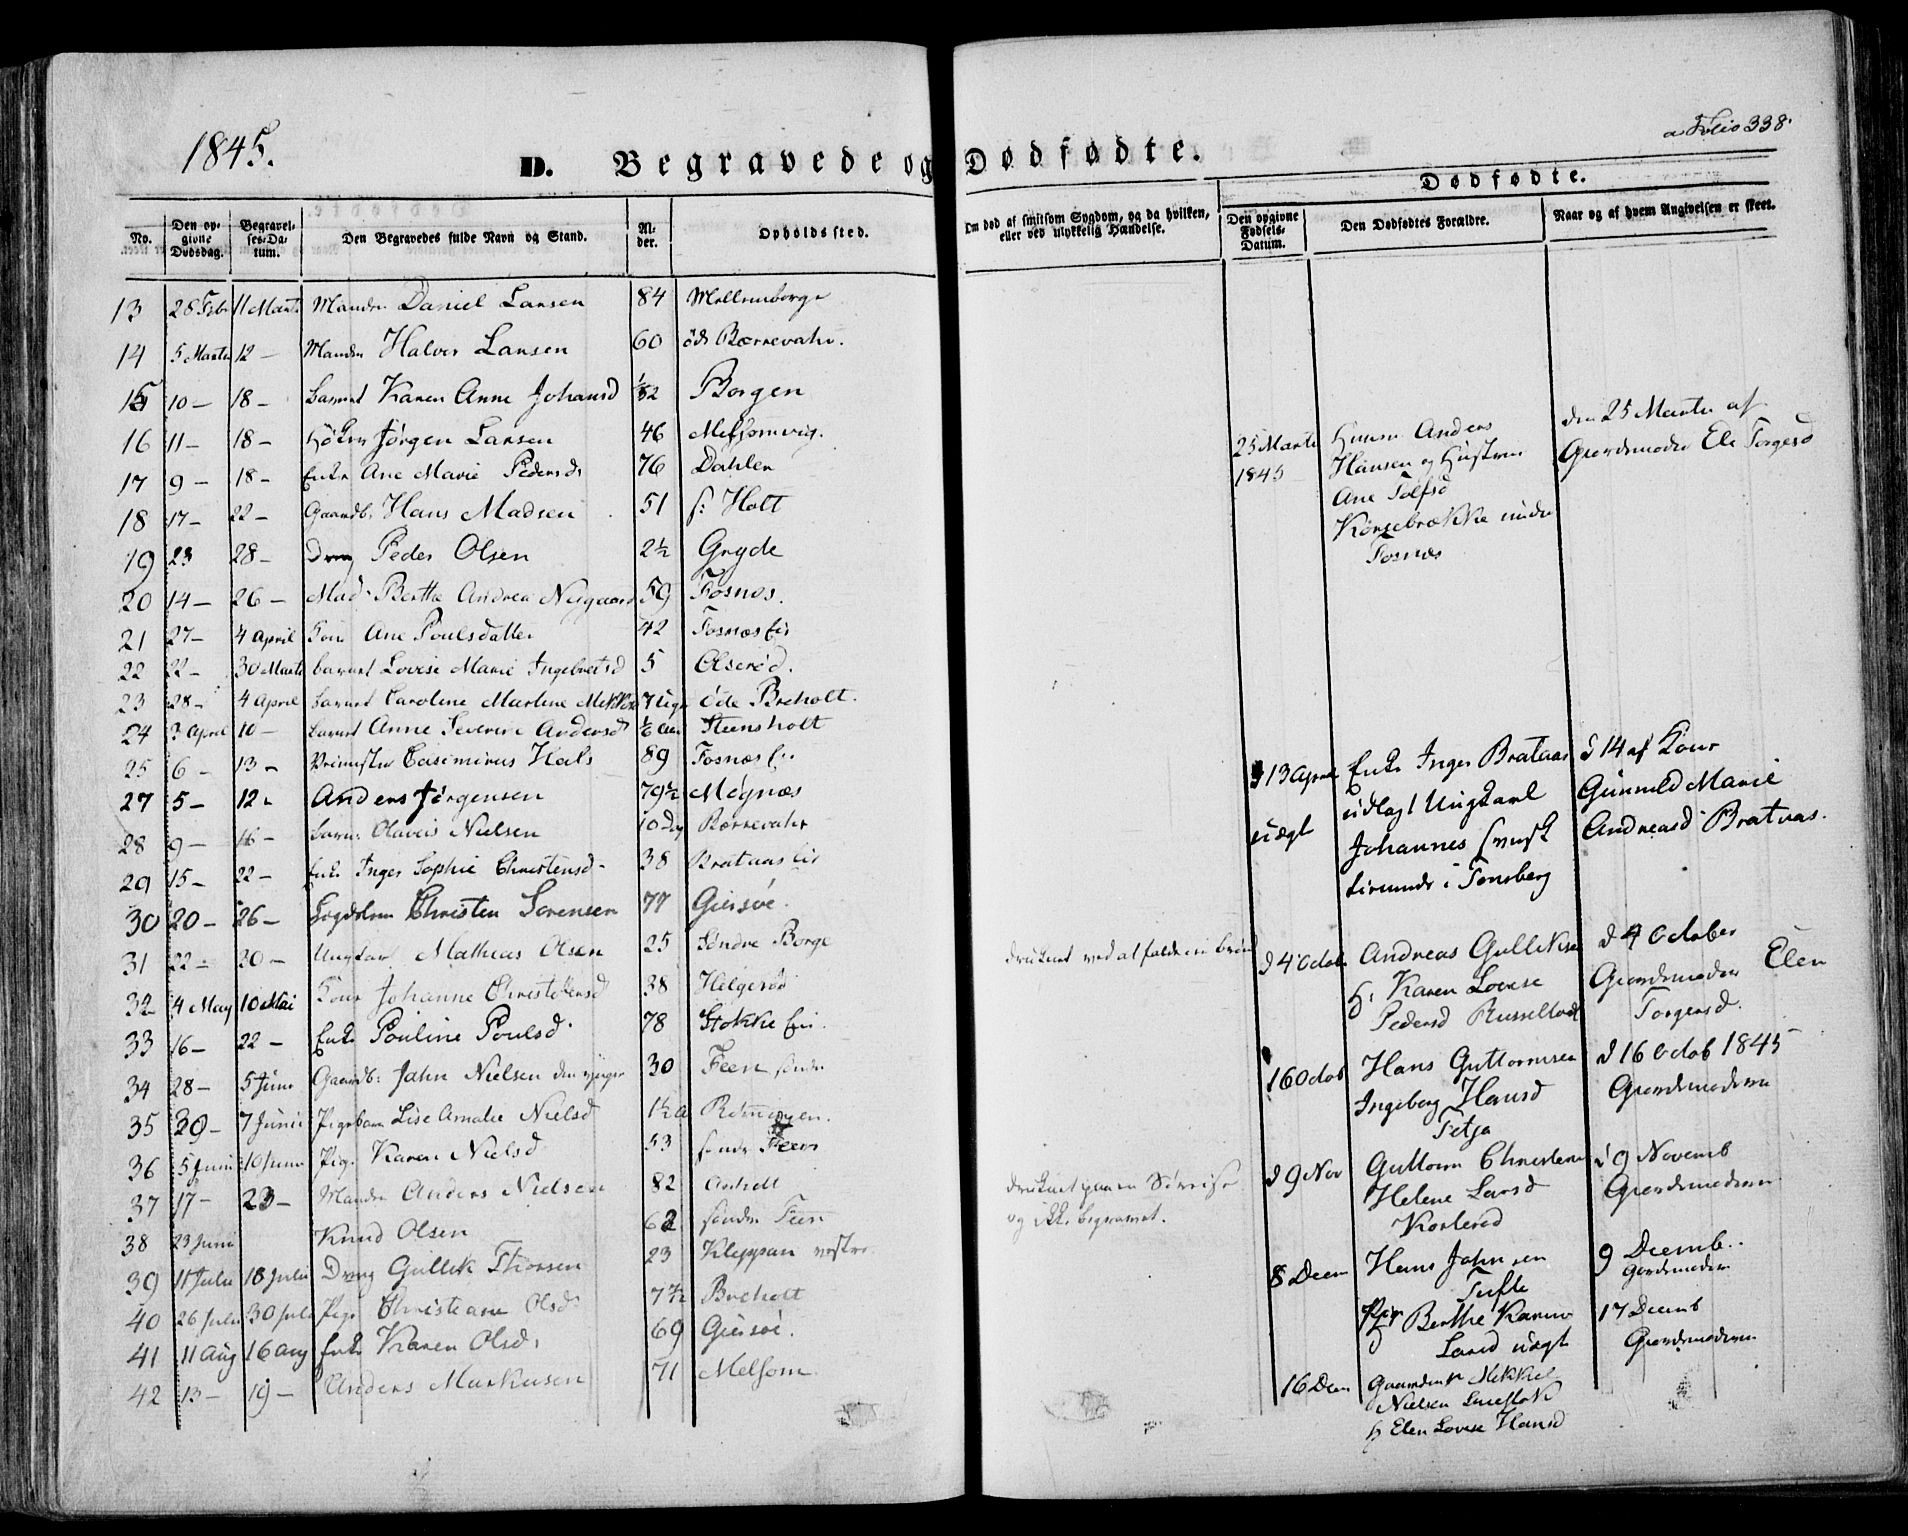 1845.
a Folio 338.
D. Begravede og Dødfødte.
Dødfødte.
No.
Den opgivne Dødsdag.
Begravelses-Datum.
Den Begravedes fulde Navn og Stand.
Alder.
Opholdssted.
Om død af smitsom Sygdom, og da hvilken, eller ved ulykkelig Hændelse.
Den opgivne Fødsels-Datum.
Den Dødfødtes Forældre.
Naar og af hvem Angivelsen er skeet.
13 28 Febr 11 Marts Manden Daniel Larsen 84
14 5 Marts 12 – Manden Halvor Larsen 60 øde Bærrevahr.
15 10 – 18 – Barnet Karen Anne Johansd Borgen
16 11 – 18 – Jørgen Larsen 46 Melsomvig.
17 9 – 18 – Enke Ane Marie Pedersd 76 Dahlen
18 17 – 22 – Gaardb. Hans Madsen 51 s: Holt
19 23 28 – Dreng Peder Olsen 2½ Gryde
20 14 – 26 – Mad. Berthe Andrea Neigaard 59 Fosnes.
21 27 – 4 April Kone Ane Poulsdatter 42 Fosnæs Eie
22 22 – 30 Marts barnet Lovise Marie Ingebretsd 5 Olserød.
23 28 – 4 April barnet Caroline Marline 7 Uger Øde Breholt.
24 3 April 10 – barnet Anne Severine Andersd Steensholt
25 6 – 13 – Casimirus Hals 89 Fosnæs Eie
27 5 – 12 – Anders Jørgensen 79½ Møgnæs
28 9 – 16 – Olaves Nielsen 10 Dag Børrevahr
29 15 – 22 – Enke Inger Sophie Christensd – 38 Brataas Eie
30 20 – 26 – Christen Sørensen 77 Giersøe.
31 22 – 20 – Ungkarl Mathias Olsen 25 Søndre Borge druknet ved at falde i en brønd
32 4 May 10 Mai Kone Johanne 38 Helgerød
33 16 – 22 – Enke Pouline Poulsd. 78 Stokke Eie.
34 28 – 5 Juni Gaardb: Jahn Nielsen den yngre 30 Feen søndre
35 29 – 7 Junii Pigebarn Lise Amalie Nielsd 1½ a
36 5 Juni 10 Juni Pige Karen Nielsd 53 søndr Feen
37 17 – 23 – Manden Anders Nielsen 82
38 23 Juni Knud Olsen 62 søndre Feen og ikke begravet.
39 11 Julii 18 Julii Dreng Gullik Thorsen 23 Kleppan vestre
40 26 Juli 30 Juli Pige Christiane Olsd 7½ Breholt
41 11 Aug 16 Aug Enke Karen Olsd. 69 Giersøe.
42 13 – 19 – Anders Markusen 71 Melsom
25 Marts
1845
Huusm. Anders
Hansen og Hustrue
Ane Tolfsd
Korsebrække under
Fosnæs
den 25 Marts af
Giordemoder Ele Torgesd
d 13 April
uægt
Enke Inger Brataas
udlagt Ungkarl
Johannes Svensk
tienende i Tønsberg
d 14 af Kone
Gunnild Marie
Andreasd Brataas.
d 4 Octob
Andreas Gulliksen
H. Karen Lovise
Pedersd Russeltvedt
d 4 October
Giordemoder Elen
Torgersd.
16 Octob
Hans Guttormsen
Ingeborg Hansd
Tetja
d 16 Octob 1845
Giordemoderen
d 9 Nov
Guttorm Christensen
Helene Larsd
Korterød
d 9 Novemb
Giordemoderen
8 Decem
Hans Johnsen
Tufte
9 Decemb.
Giordemoderen
Pige Berthe Karine
Larsd uægt
17 Decemb
Giordemoderen
16 Decem
Gaardmand Mikkel
Nielsen
H Elen Lovise Hansd